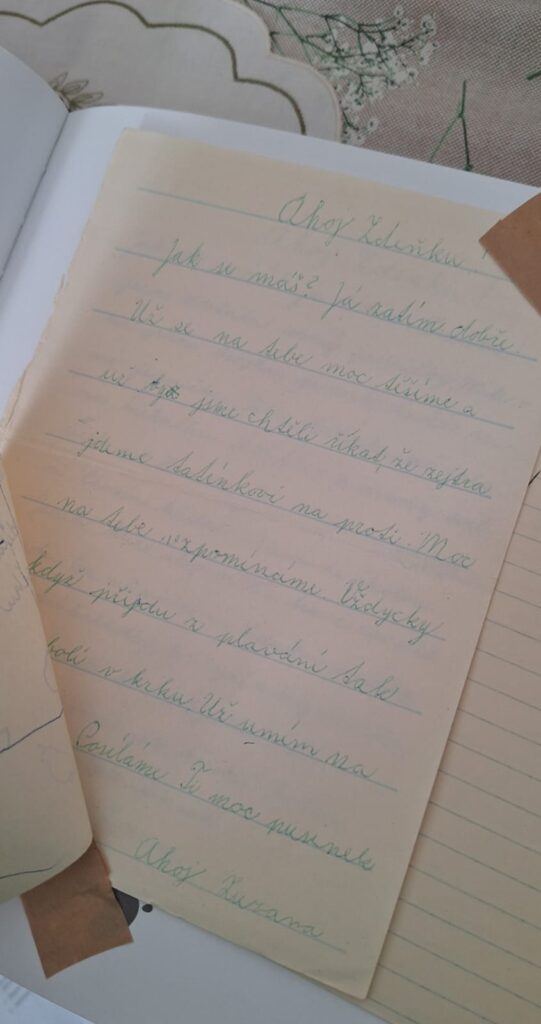 Ahoj Zdeňku!
Jak se máš? Já zatím dobře.
Už se na tebe moc těšíme a
už jsme chtěli říkat, že zejtra
jdeme tatínkovi na proti. Moc
na tebe vzpomínáme. Vždycky
když přijdu z plavání tak
bolí v krku. Už umím na
Posíláme Ti moc pusinek
Ahoj Zuzana